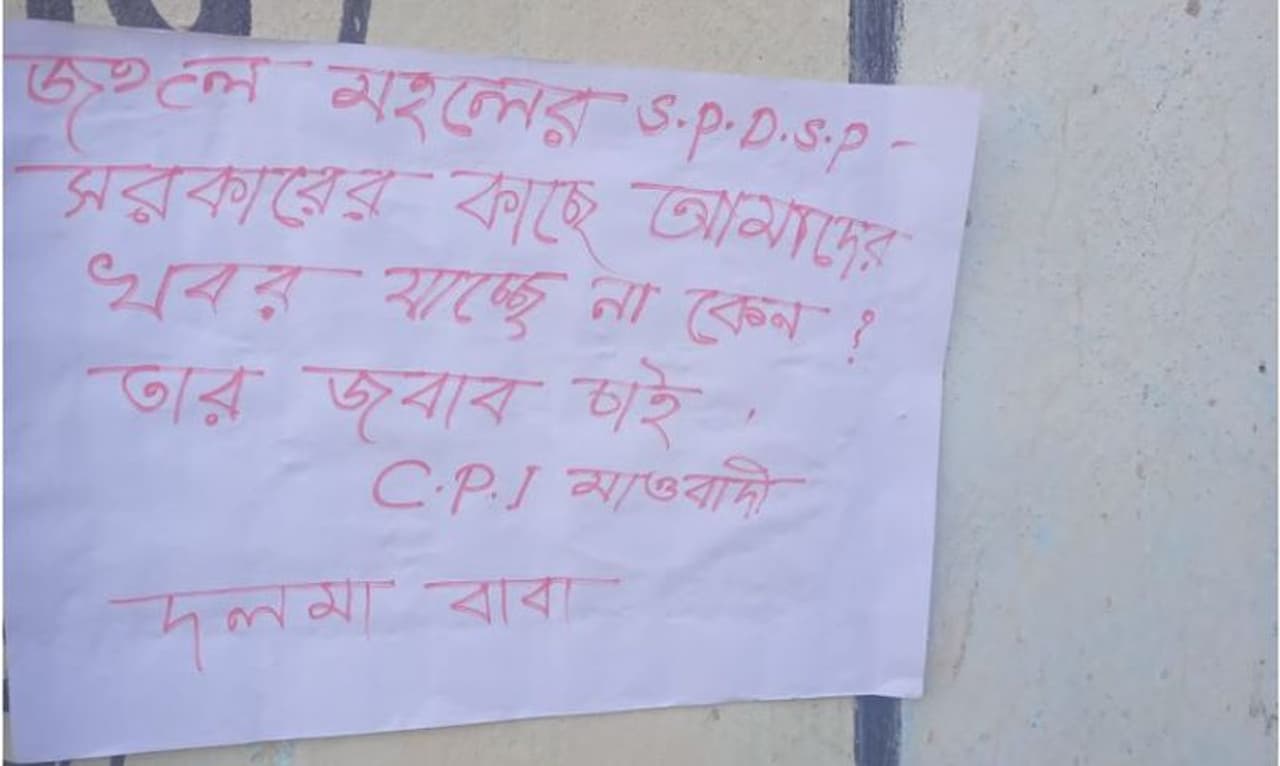 জংলে মহলের S.P.D.S.P -
সরকারের কাছে আমাদের
খবর যাচ্ছে না কেন ?
তার জবাব চাই .
C.P.I মাওবাদী
দলমা বাবা